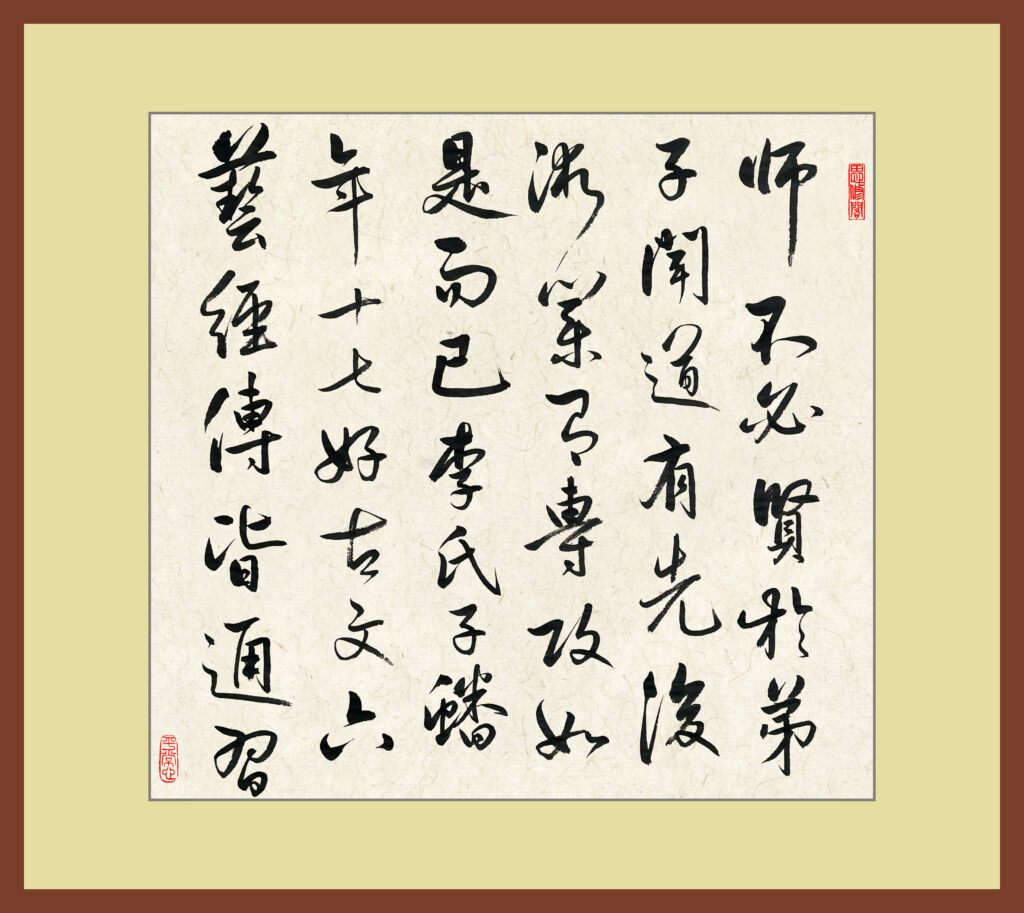 思修閣
师不必賢於弟
子聞道有先後
術業有專攻如
是而已李氏子蟠
年十七好古文六
藝經傳皆通習
平常心